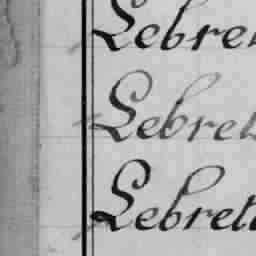 Lebret
Lebret
Lebreto